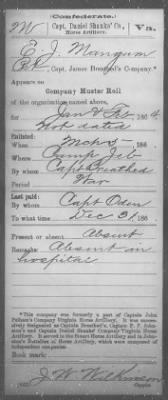 (Confederate.)
M Capt. Daniel Shanks' Co., Va.
Horse Artillery.
E. J. Mangum
Pvt, Capt. James Breathed's Company.*
Appears on
Company Muster Roll
of the organization named above,
for Jan & Feb, 1864.
Not dated
Enlisted:
When, 186
Where
By whom Capt Breathed
Period War
Last paid:
By whom Capt Oden
To what time Dec 31, 186
Present or absent Absent
Remarks: Absent in
hospital
*This company was formerly a part of Captain John
Pelham's Company Virginia Horse Artillery. It was successively
designated as Captain Breathed's, Captain P. P. Johnston's
and Captain Daniel Shanks' Company Virginia Horse
Artillery. It served in the Stuart Horse Artillery and in Johnston's
Battalion of Horse Artillery, which were composed of
independent companies.
Book mark:
J. W. Wilkinson
Copyist.